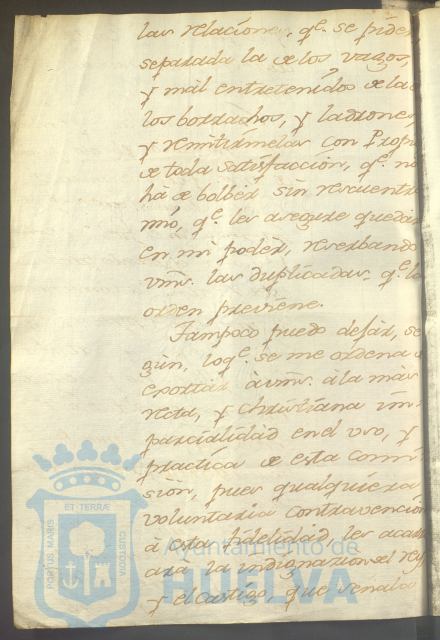 las relacione, qᵉ. se piden
separada la de los vagos,
y mal entretenidos de la
los borrachos, y ladrones
y remitirmelas con Prop
de toda satisfaccion, qᵉ. no
há de bolber sin rescuentr
mó, qᵉ. les asegure quedar
en mi podér, reserbando
vm̃s. las duplicadas, qᵉ. la
orden previene.
Tampoco puedo dejár, se
gun, loqᵉ. se me ordena
exortár á vm̃s. á la mas
recta, y christiana im
parcialidad en el uso, y
practica de esta comi
sión, pues qualquiera
voluntaria contravención
á esta fidelidad, les acar
ará la indignazion del rey
y el castigo, que señala
ET TERRÆ
PORTUS MARIS
CUSTODIA
Ayuntamiento de
HUELVA